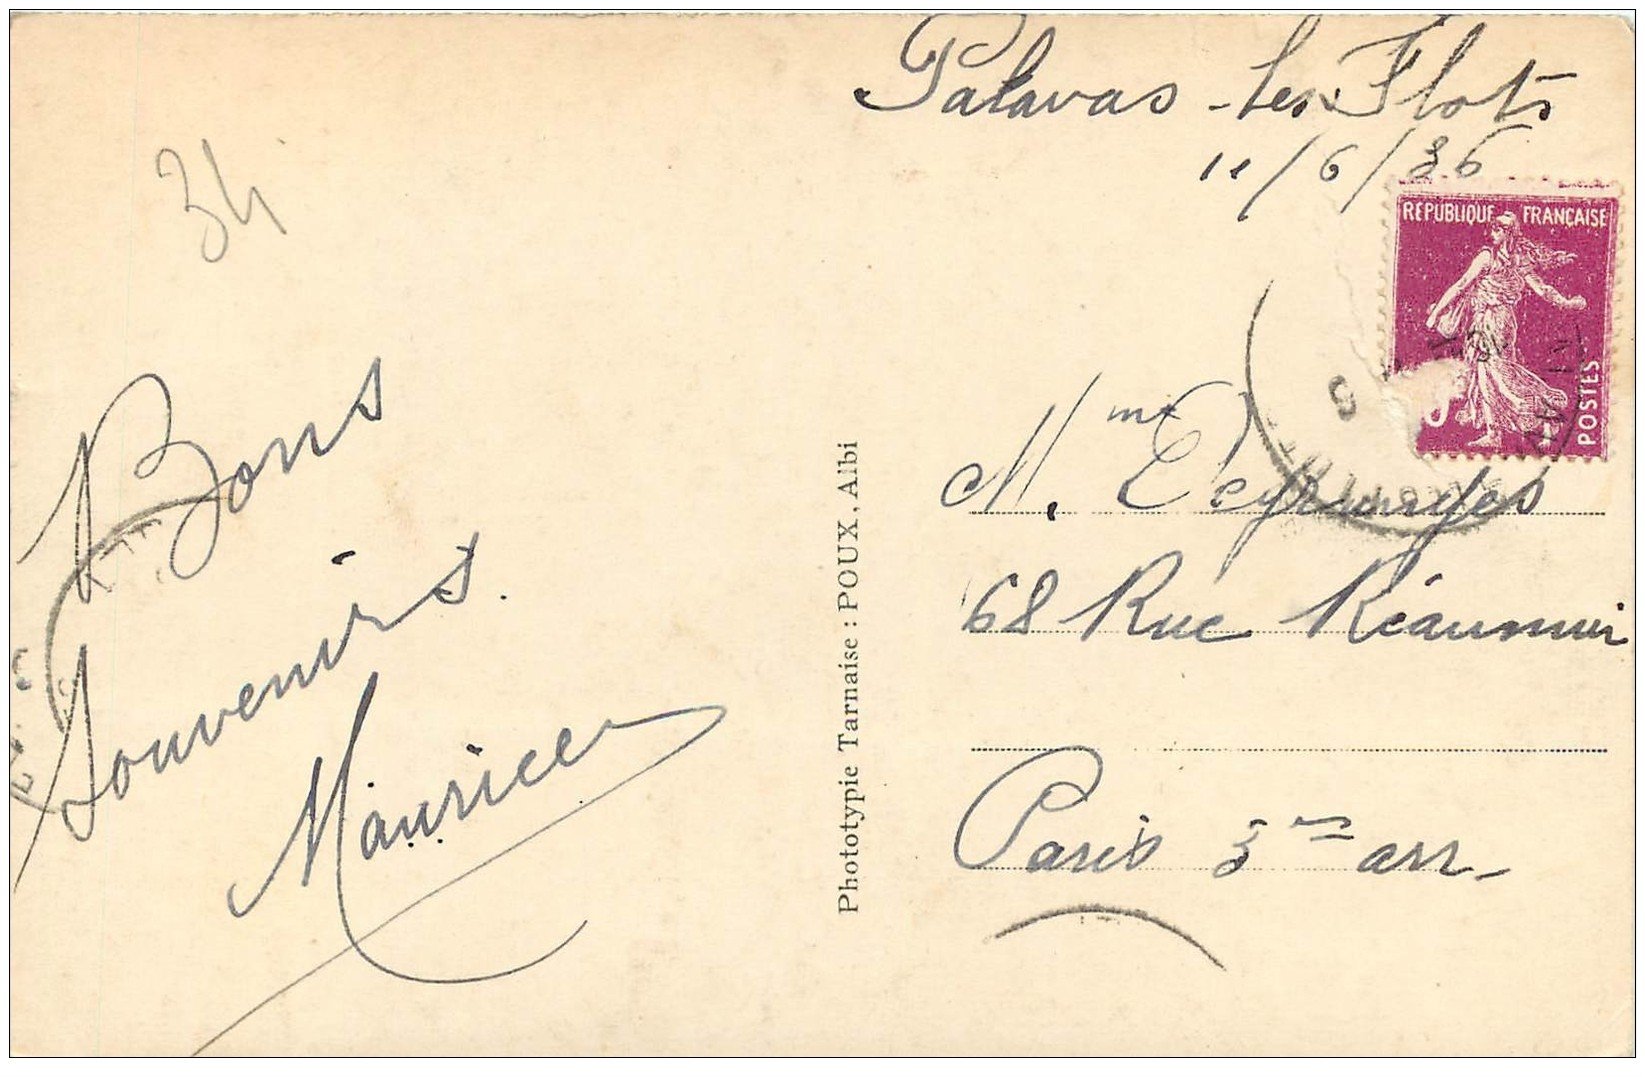 Palavas-les-Flots
11/6/36
RÉPUBLIQUE FRANÇAISE
POSTES
34
Bons
Souvenirs.
Maurice
Phototypie Tarnaise : POUX, Albi
M. me
68 Rue Réaumur
Paris 3me arr.